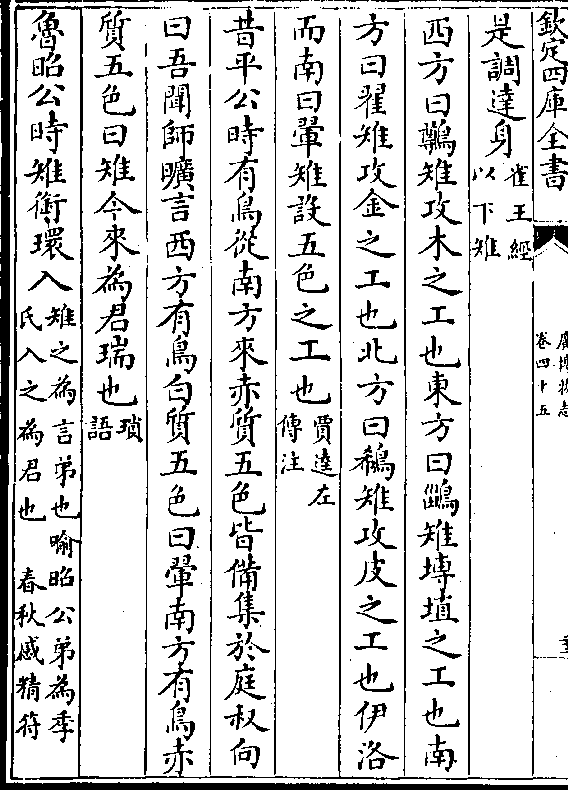 欽定四庫全書
廣博物志
卷四十五
是調達身
雀王經
以下雉
西方曰鷷雉攻木之工也東方曰鶅雉塼埴之工也南
方曰翟雉攻金之工也北方曰鵗雉攻皮之工也伊洛
而南曰翬雉設五色之工也
賈逵左
傳注
昔平公時有鳥從南方來赤質五色皆備集於庭叔向
曰吾聞師曠言西方有鳥白質五色曰翬南方有鳥赤
質五色曰雉今來為君瑞也
瑣
語
魯昭公時雉銜環入
雉之為言弟也喻昭公弟為季
氏入之為君也 春秋感精符